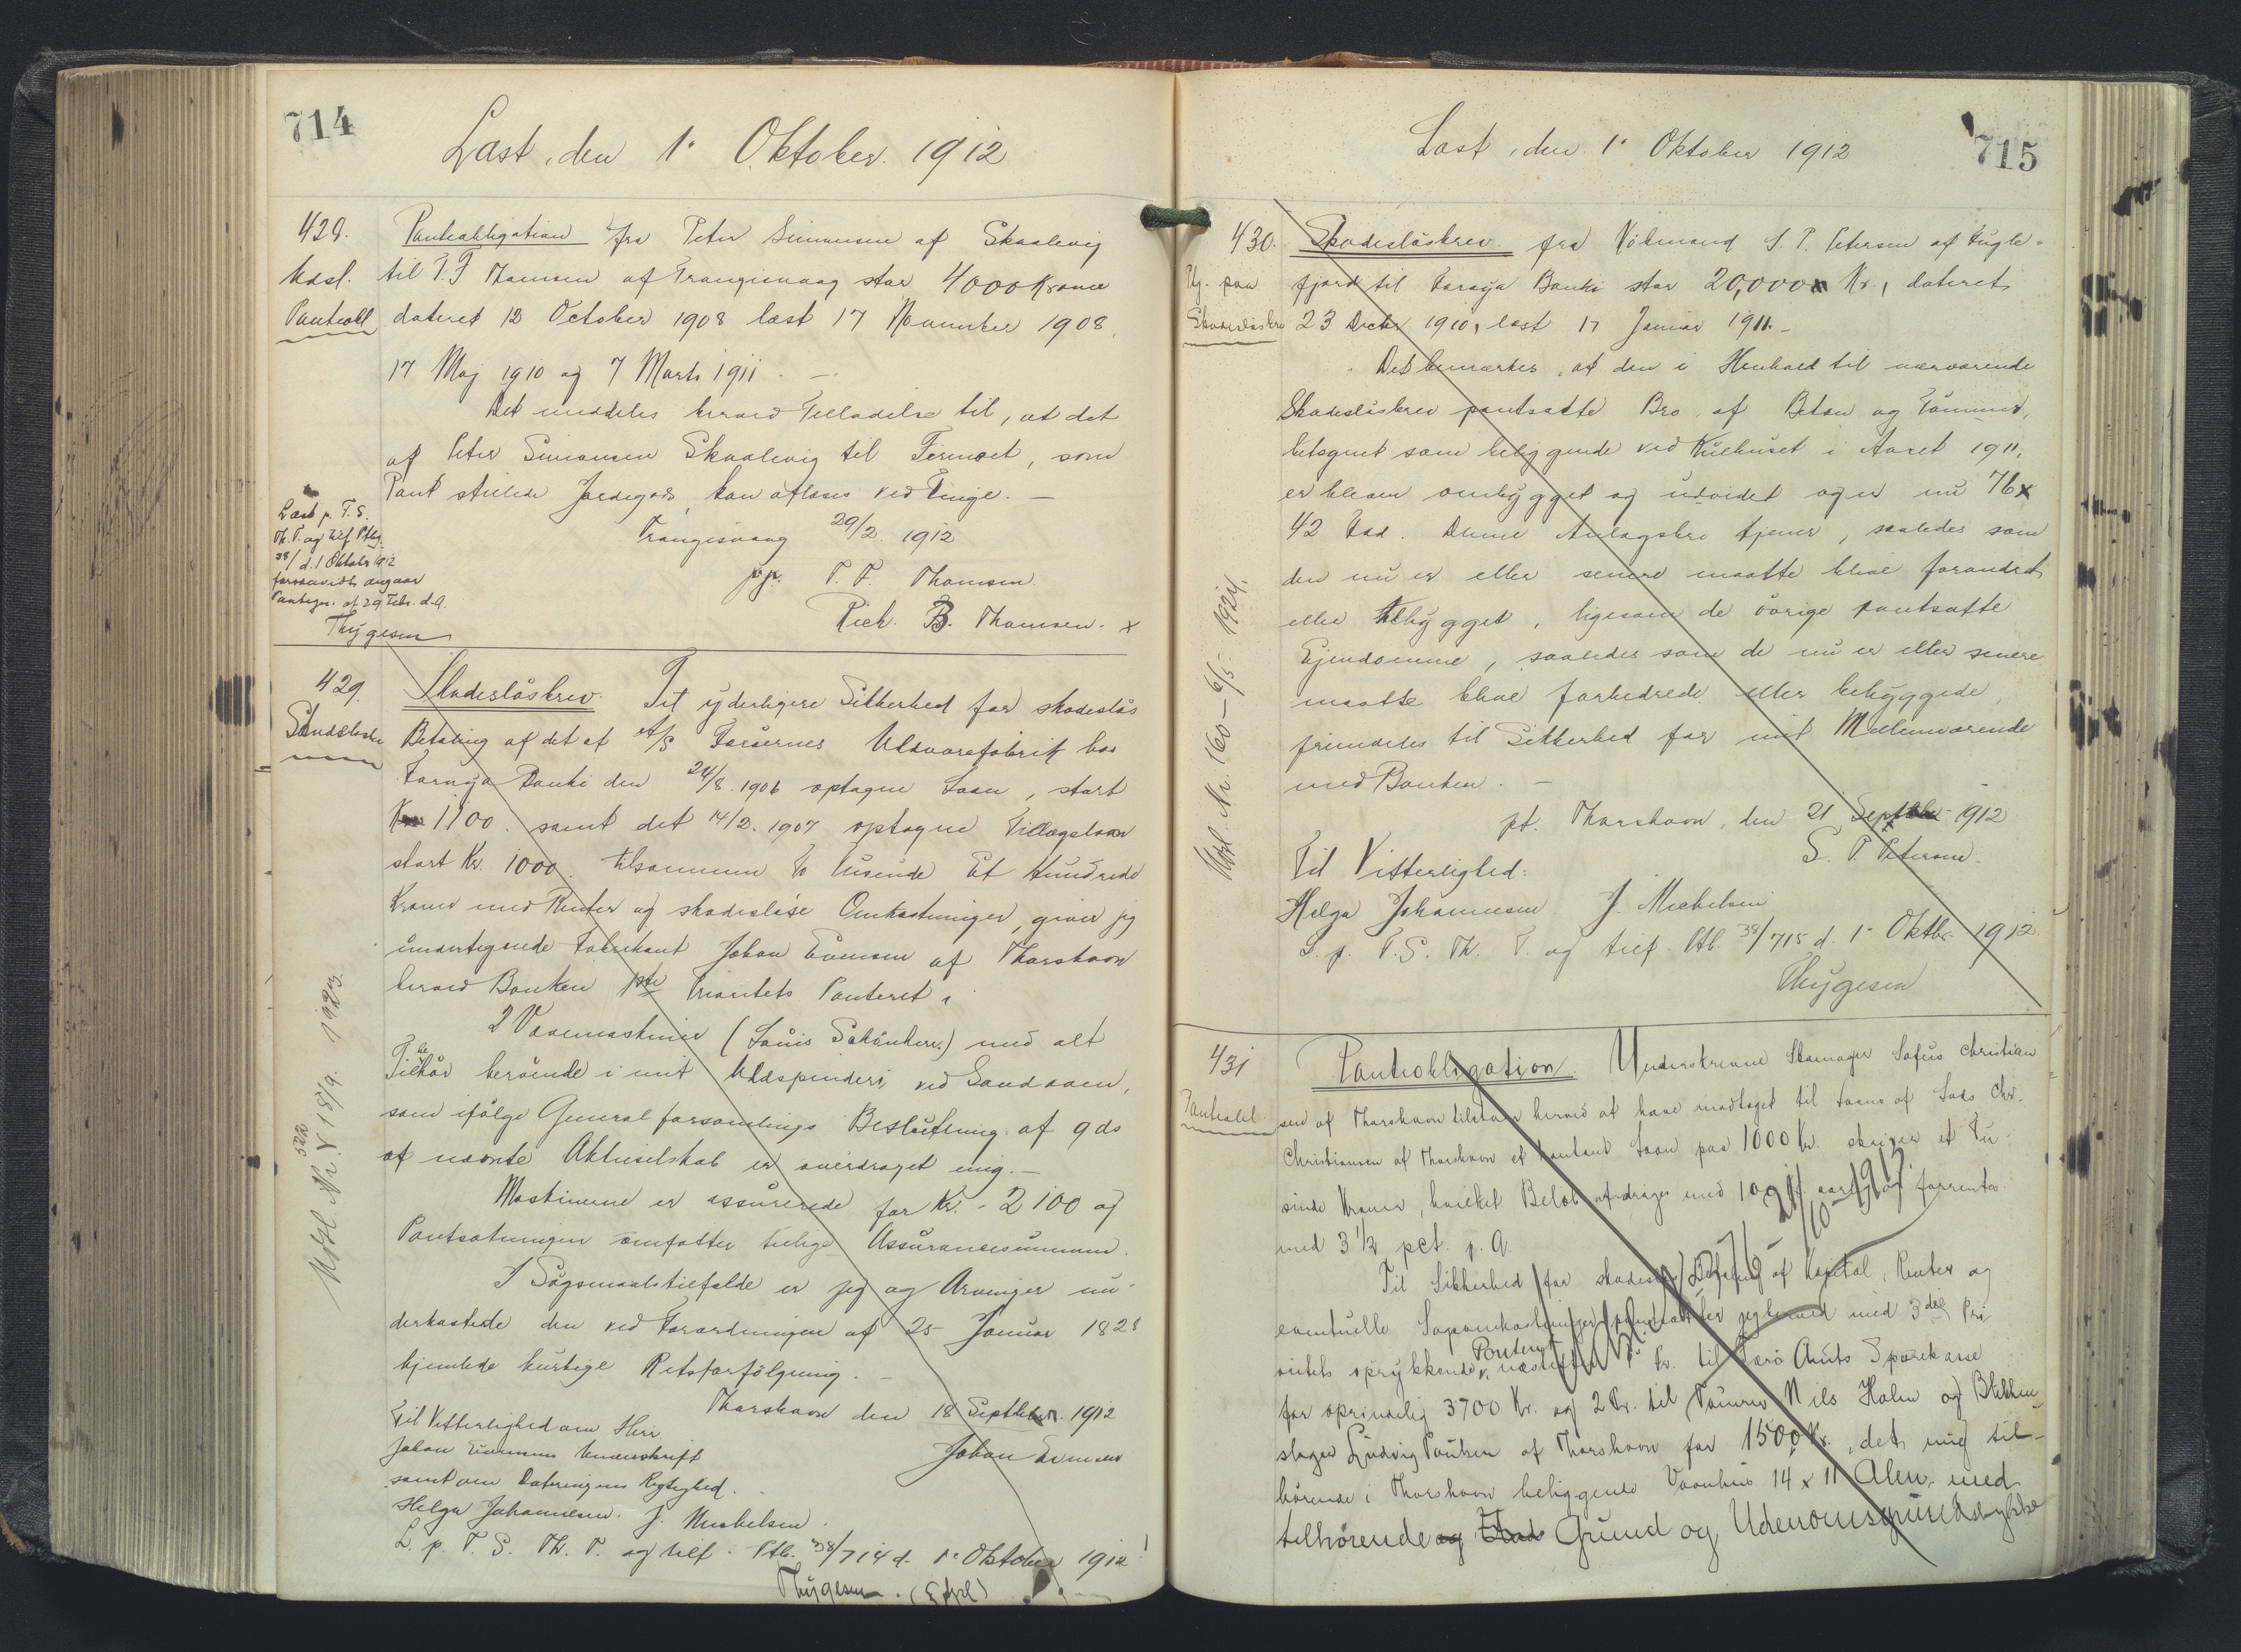 714
Læst, den 1' Oktober. 1912
428.
Udsl.
Panteobl
Panteobligation fra Peter Simonsen af Skaalevig
til T. F Thomsen af Trangisvaag stor 4000 Krone
dateret 12 October 1908 læst 17 November 1908,
17 Maj 1910 og 7 Marts 1911. —
Det meddeles herved Tilladelse til, at det
af Peter Simonsen Skaalevig til Firmaet, som
Pant stillede Jordegods, kan afløses ved Tinge. —
Trangisvaag 29/2. 1912
pp. T. F. Thomsen
Rich. B. Thomsen. x
Læst p. T. S.
Th. T. og tilf Ptbg.
38/ d. 1 Oktober 1912
forsaavidt angaar
Panteger. af 29 Febr. d.A.
Thygesen
429.
Skadesløsbrev. Til yderligere Sikkerhed for skadesløs
Betaling af det af A/S Færøernes Uldvarefabrik hos
Førøya Banki den 24/8. 1906 optagne Laan, stort
Kr 1100. samt det 14/2. 1907 optagne Tillægslaan
stort Kr. 1000. tilsammen To Tusinde Et Hundrede
Kroner med Renter og skadesløse Omkostninger, giver jeg
undertegnede Fabrikant Johan Evensen af Thorshavn
herved Banken 1ste Prioritets Panteret i
2 Vævemaskiner (Louis Schönherr) med alt
Tilbehør beroende i mit Uldspinderi ved Sandaaen,
som ifølge Generalforsamlings Beslutning af 9 ds
af nævnte Aktieselskab er overdraget mig. —
Maskinerne er assurerede for Kr. - 2100 og
Pantsætningen omfatter tillige Assurancesummen.
I Søgsmaalstilfælde er jeg og Arvinger un-
derkastede den ved Forordningen af 25 Januar 1828
hjemlede hurtige Retsforfølgning. —
Thorshavn den 18 September. 1912
Til Vitterlighed om Herr
Johan Evensens Underskrift
Johan Evensen
samt om Dateringens Rigtighed.
Helga Johannesen. J. Michelsen.
L. p. T. S. Th. T. og tilf. Ptb. 38/714 d. 1' Oktober 1912!
Thygesen.
Udsl. Nr. 522 18/9. 1923.
715
Læst, den 1' Oktober 1912
430.
Skadesløsbrev fra Købmand S. P. Petersen af Fugle-
fjord til Førøya Banki stor 20,000 Kr, dateret
23 Decbr 1910, læst 17 Januar 1911. —
Det bemærkes, at den i Henhold til nærværende
Skadesløsbrev pantsatte Bro, af Beton og Tømmer,
betegnet som beliggende ved Kulhuset i Aaret 1911,
er bleven ombygget og udvidet og er nu 76 x
42 Fod. Denne Anlægsbro tjener, saaledes som
den nu er eller senere maatte blive forandret
eller tilbygget, ligesom de øvrige pantsatte
Ejendomme, saaledes som de nu er eller senere
maatte blive forbedrede eller bebyggede,
fremdeles til Sikkerhed for mit Mellemværende
med Banken. —
pt. Thorshavn, den 21 Septbr 1912
S. P. Petersen.
Til Vitterlighed:
Helga Johannesen J. Michelsen
L. p. T. S. Th. T. og tilf. Ptb. 38/715 d. 1' Oktbr 1912.
Thygesen
Udsl. Nr. 160 - 6/5. 1924.
431
Panteobl.
Panteobligation. Underskrevne Skomager Sofus Christian
sen af Thorshavn tilstaar herved at have modtaget til Laans af Chr.
Christiansen af Thorshavn et kontant Laan paa 1000 Kr. skriver et Tu-
sinde Kroner, hvilket Beløb afdrages med 100 Kr. aarlig og forrentes
med 3 1/2 pct. p. A.
Til Sikkerhed for skadesløs Betaling af Kapital, Renter og
eventuelle Sagsomkostninger pantsætter jeg herved med 3die Pri
oritets oprykkende Panteret næstefter 1' Pr. til Færø Amts Sparekasse
for oprindelig 3700 Kr. og 2 Pr. til Tømrer Nils Holm og Blikken
slager Ludvig Poulsen af Thorshavn for 1500 Kr., det mig til-
hørende i Thorshavn beliggende Vaanhus 14 x 11 Alen. med
tilhørende Grund og Udenomsgrundstykke